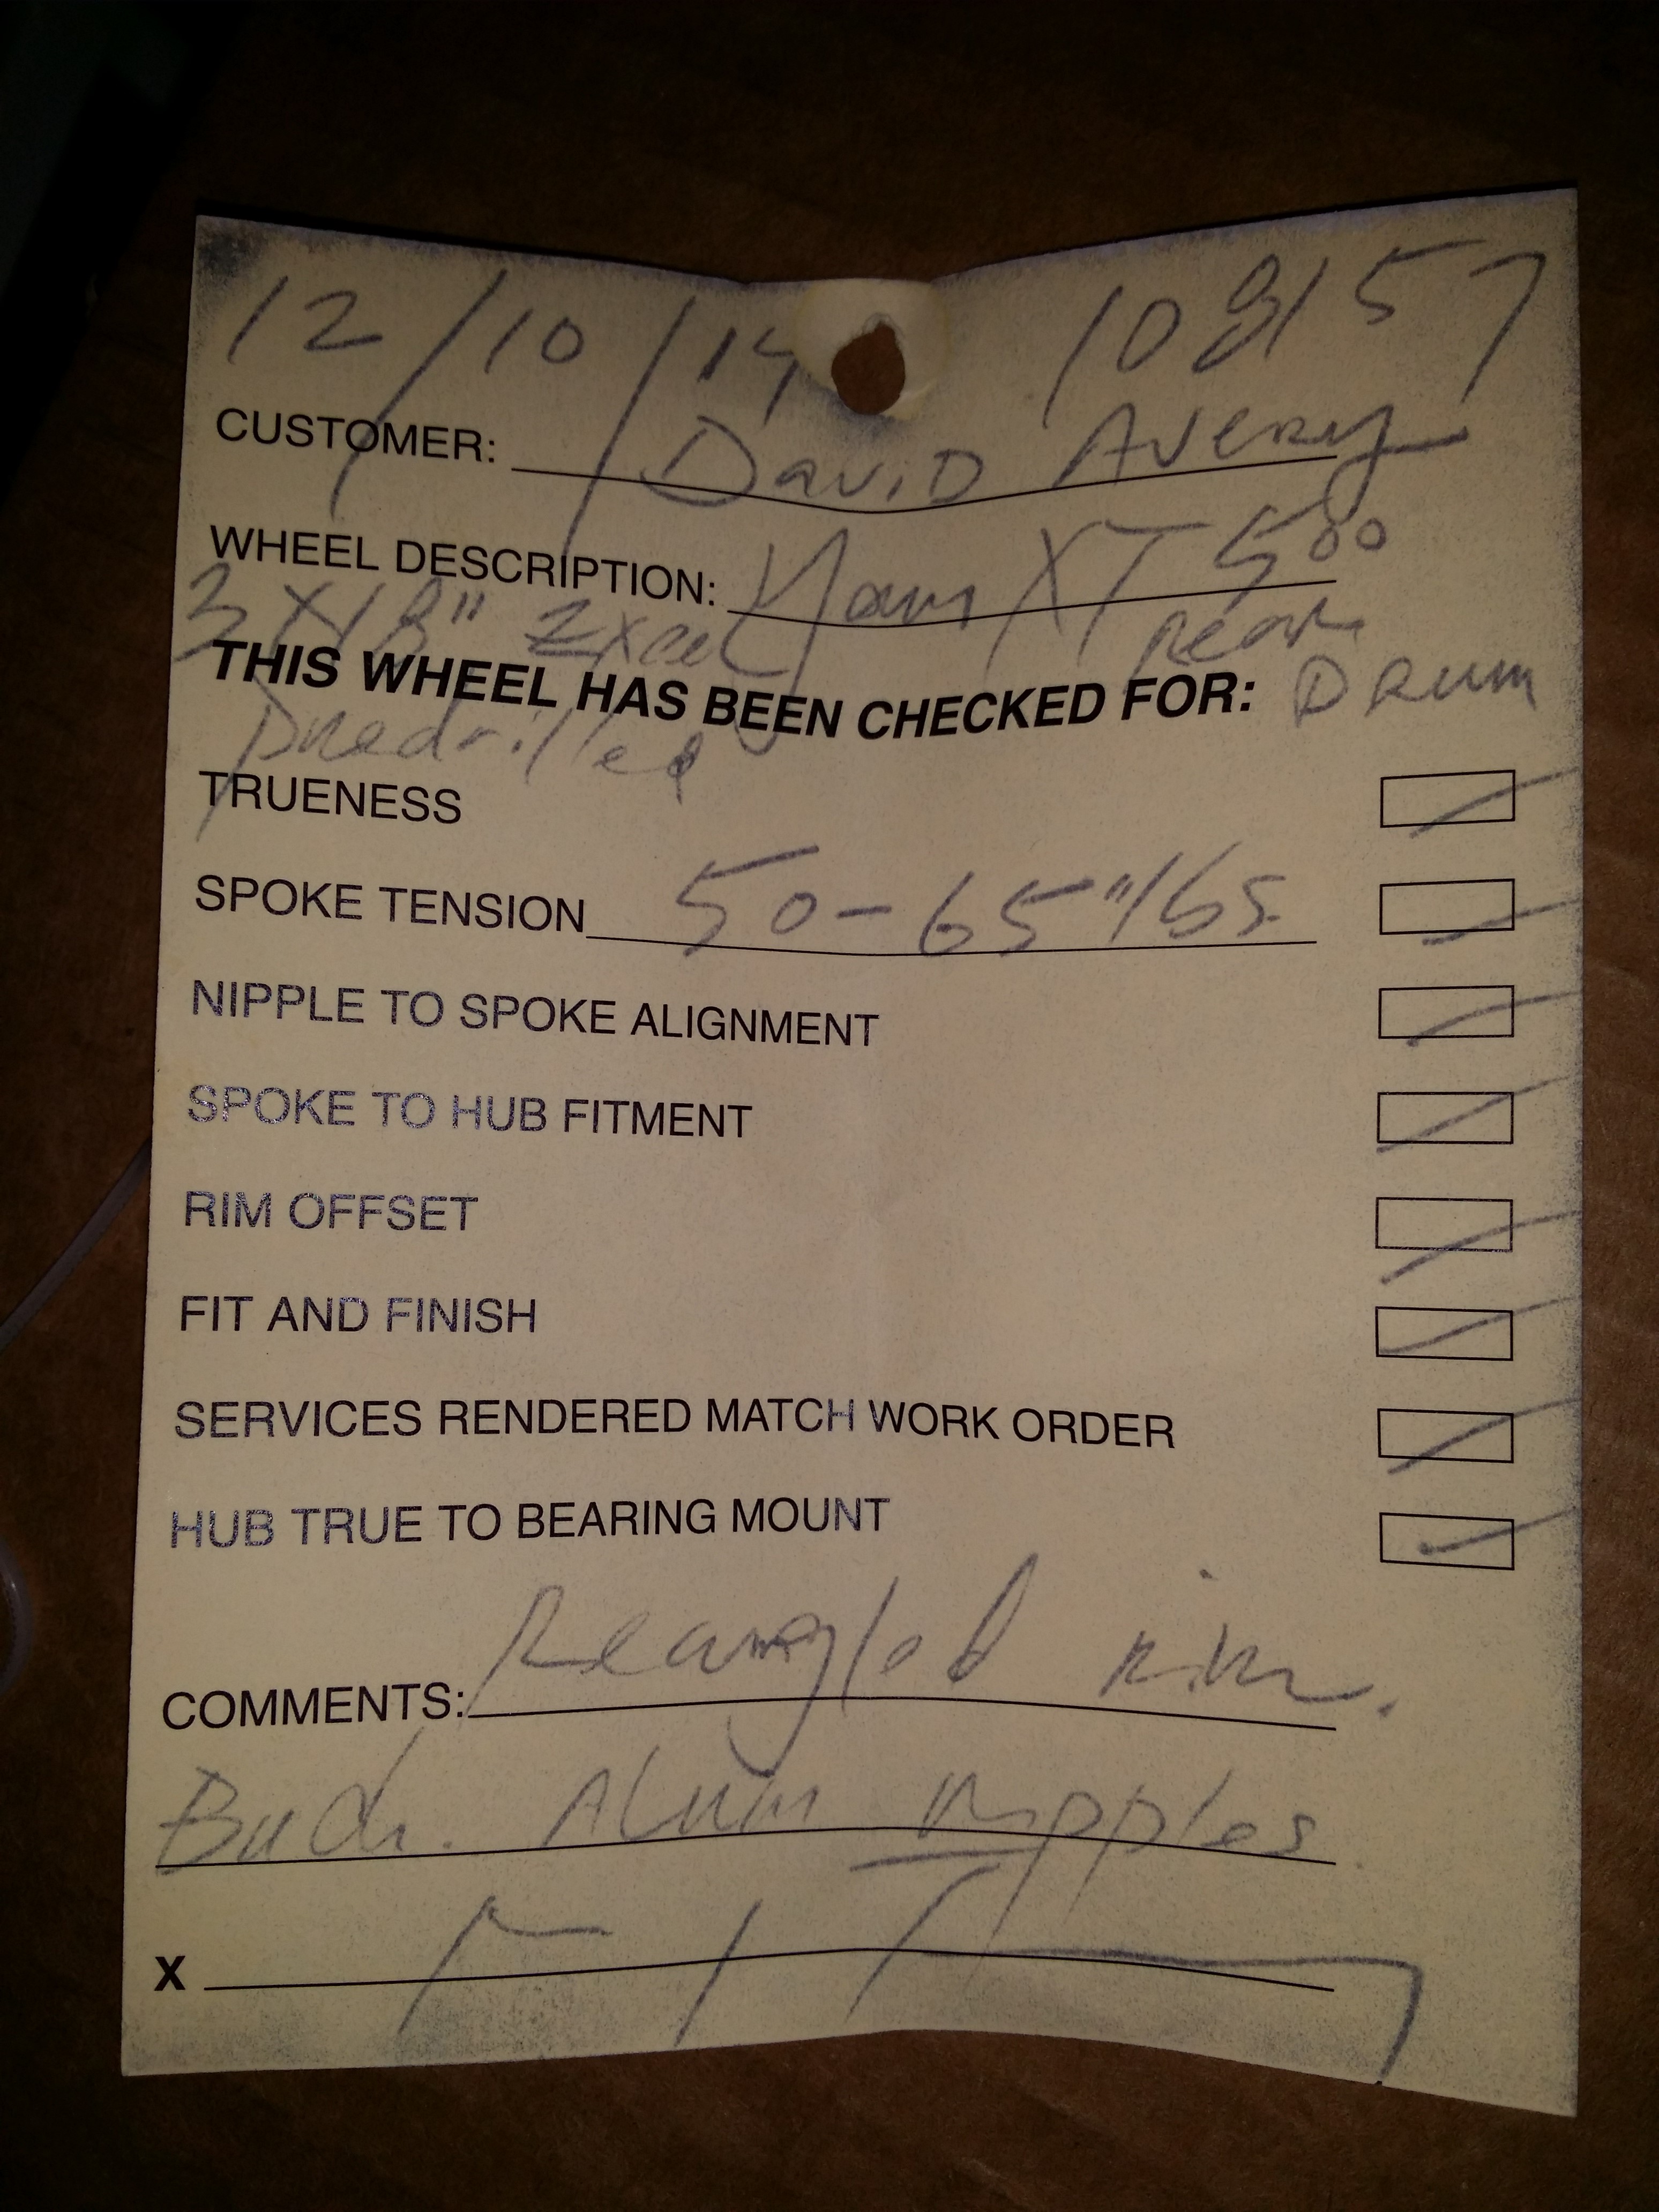 12/10/14 108157
CUSTOMER: DaviD Avery
WHEEL DESCRIPTION: Yam XT 500
3 X 18" Excel rear
THIS WHEEL HAS BEEN CHECKED FOR: DRum
predrilled
TRUENESS
SPOKE TENSION 50-65"lbs
NIPPLE TO SPOKE ALIGNMENT
SPOKE TO HUB FITMENT
RIM OFFSET
FIT AND FINISH
SERVICES RENDERED MATCH WORK ORDER
HUB TRUE TO BEARING MOUNT
COMMENTS: Reangled rim.
Alum nipples
X